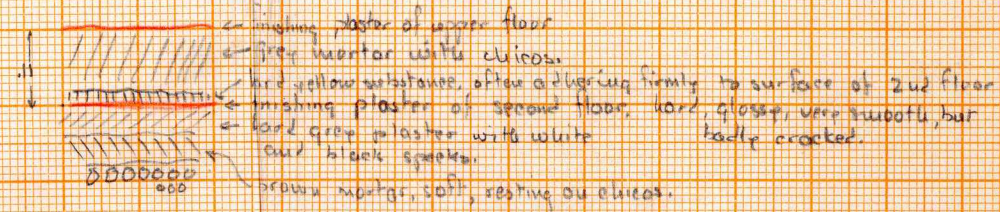 finishing plaster of upper floor
grey mortar with chicos.
hard yellow substance, often adhering firmly to surface of 2nd floor
.11
finishing plaster of second floor, hard, glossy, very smooth, but
hard grey plaster with white badly cracked.
and black specks.
brown mortar, soft, resting on chicos.